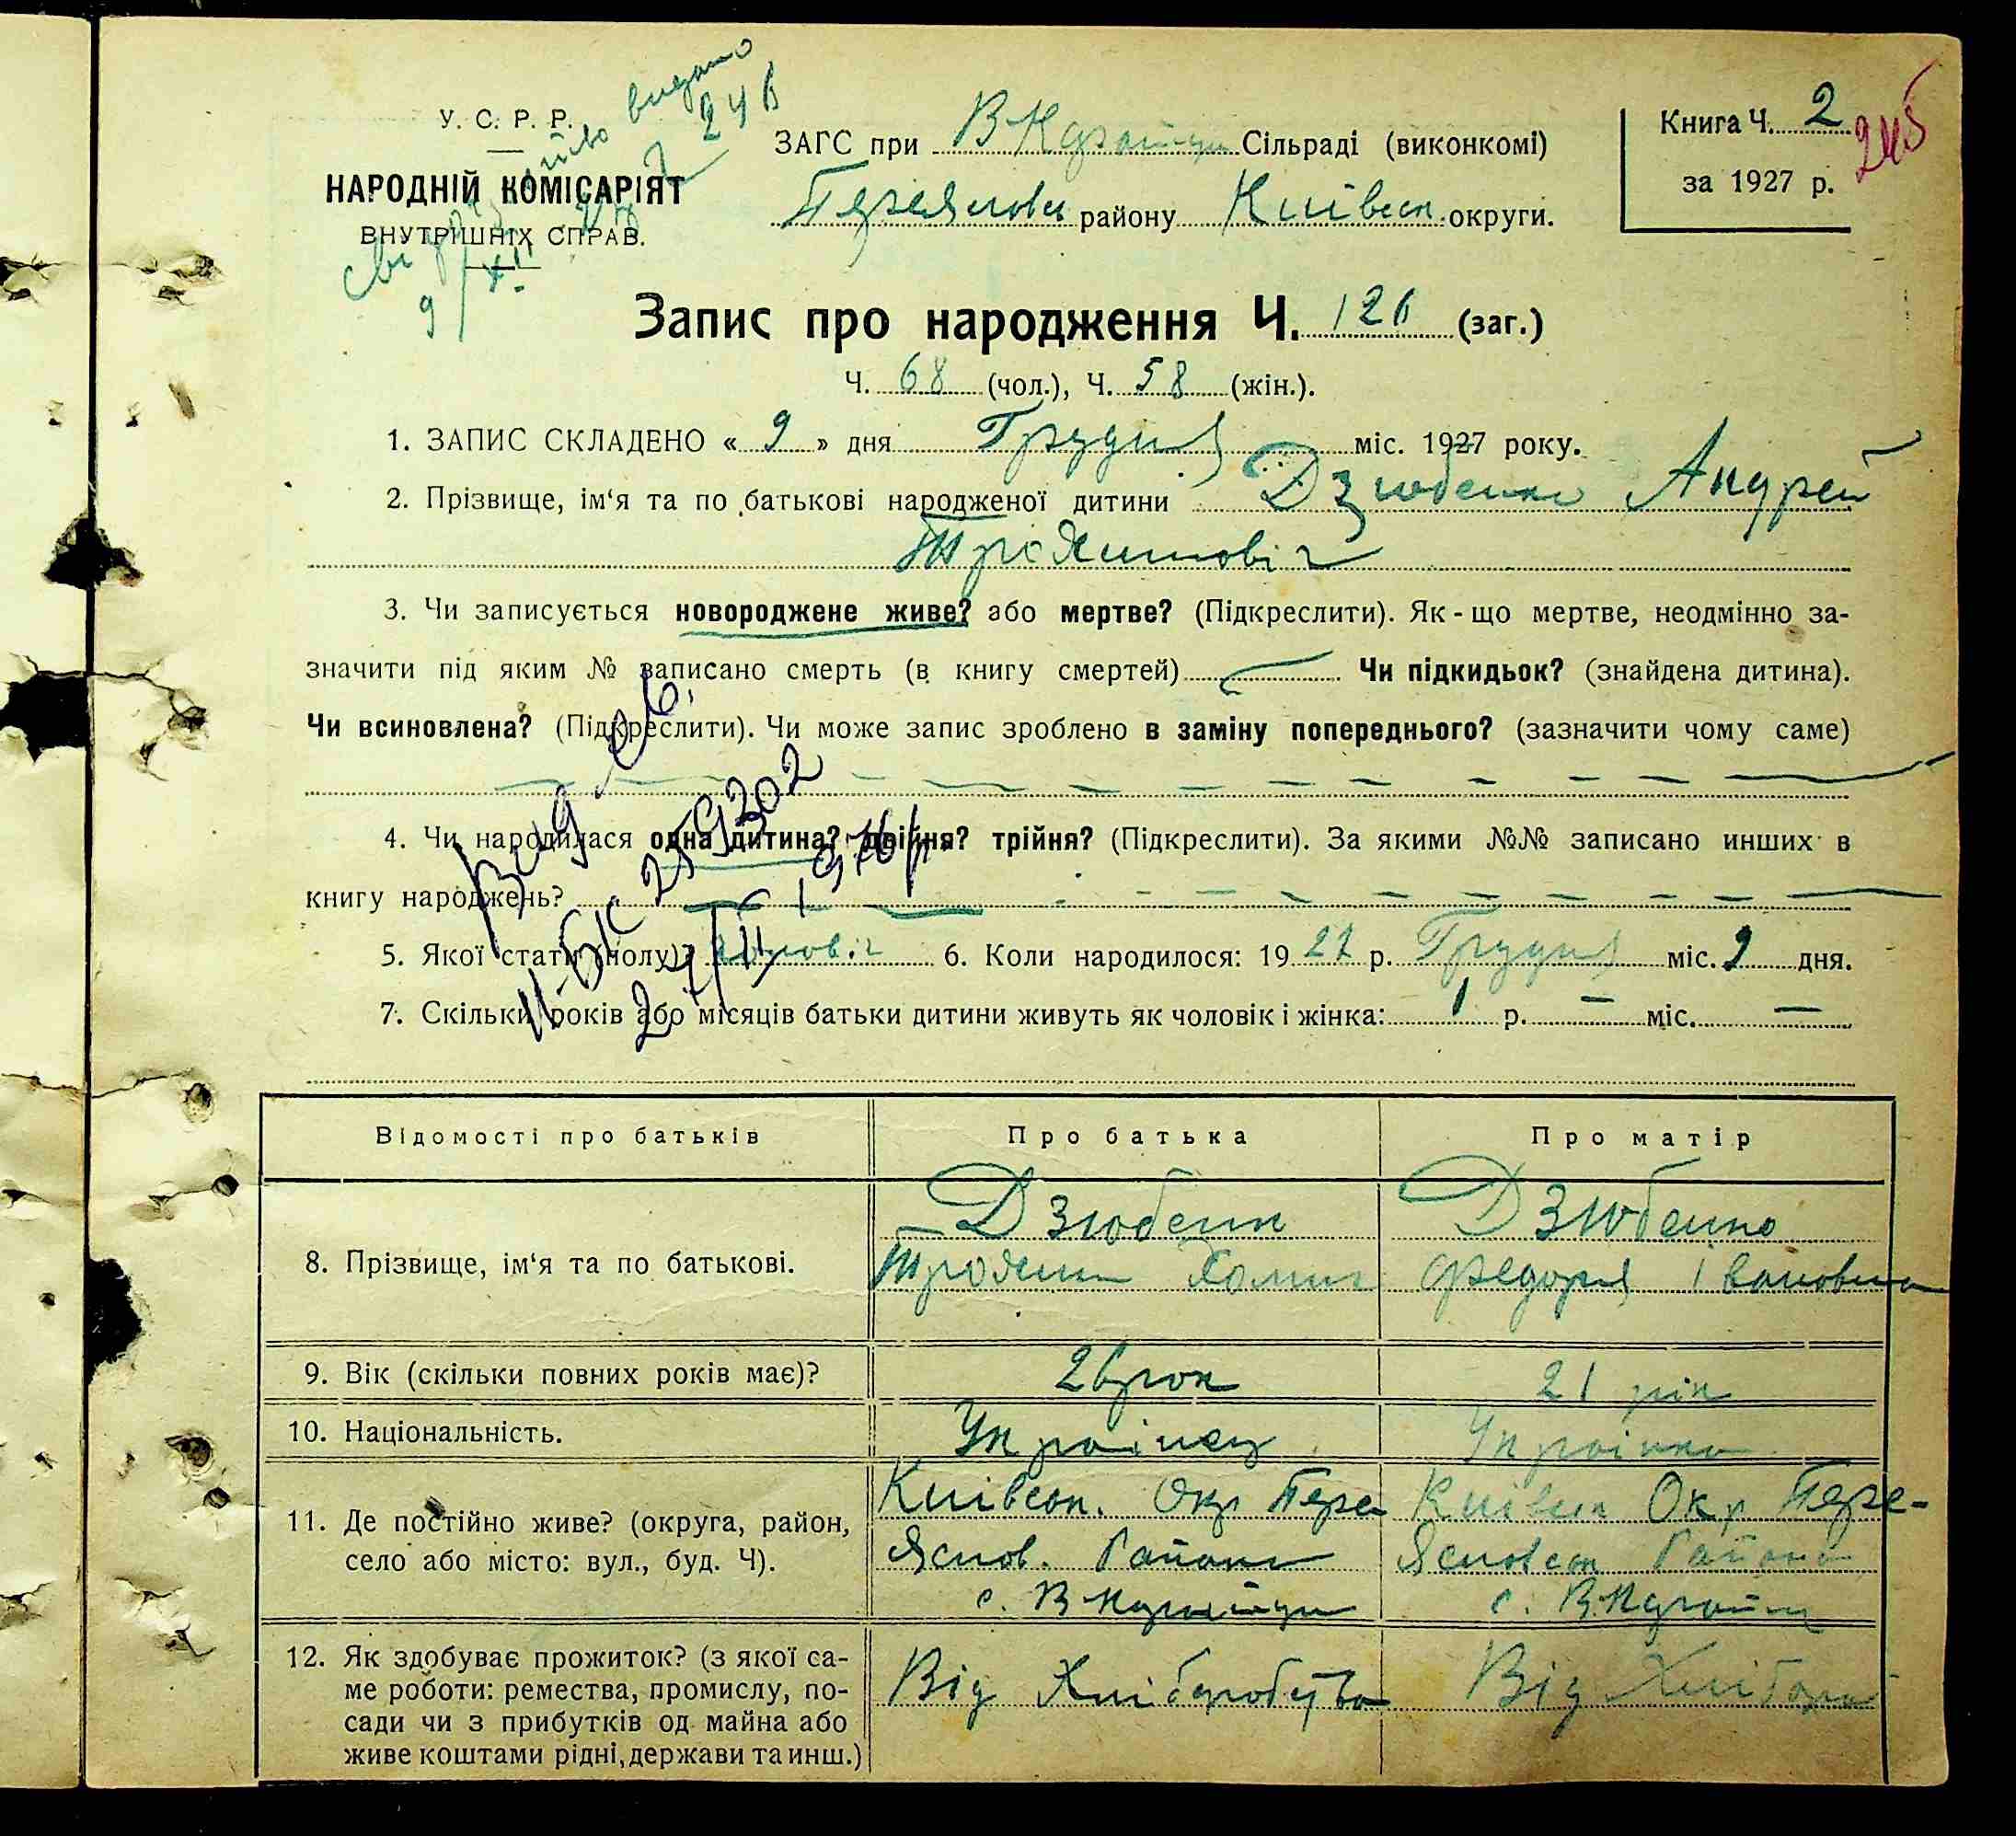 У. С. Р. Р.
НАРОДНІЙ КОМІСАРІЯТ
ВНУТРІШНІХ СПРАВ.
видано
9/XII
ЗАГС при Сільраді (виконкомі)
району Київськ. округи.
Книга Ч. 2
за 1927 р.
245
Запис про народження Ч. 126 (заг.)
Ч. 68 (чол.), Ч. 58 (жін.).
1. ЗАПИС СКЛАДЕНО « 9 » дня Грудня міс. 1927 року.
2. Прізвище, ім‘я та по батькові народженої дитини Дзюбенко Андрей
Трохимовіч
3. Чи записується новороджене живе? або мертве? (Підкреслити). Як-що мертве, неодмінно за-
значити під яким № записано смерть (в книгу смертей) Чи підкидьок? (знайдена дитина).
Чи всиновлена? (Підкреслити). Чи може запис зроблено в заміну попереднього? (зазначити чому саме)
4. Чи народилася одна дитина? двійня? трійня? (Підкреслити). За якими №№ записано инших в
книгу народжень?
5. Якої стати (полу)? 6. Коли народилося: 1927 р. Грудня міс. 9 дня.
7. Скільки років або місяців батьки дитини живуть як чоловік і жінка: 1 р. — міс. —
Відомості про батьків Про батька Про матір
8. Прізвище, ім‘я та по батькові.
Дзюбенк
Трохим Хомич
Дзюбенко
Федоря Івановна
9. Вік (скільки повних років має)? 26 рок 21 рік
10. Національність. Украінец Украінка
11. Де постійно живе? (округа, район,
село або місто: вул., буд. Ч).
Київськ. Окр Пере
яслов. Района
с. В
Київськ Окр Пере-
ясловськ Района
с. В
12. Як здобуває прожиток? (з якої са-
ме роботи: ремества, промислу, по-
сади чи з прибутків од майна або
живе коштами рідні, держави та инш.)
Від Хліборобства
Від Хлібороб